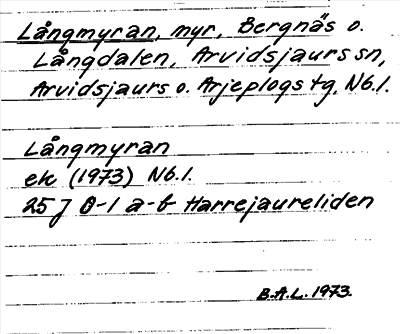 Långmyran, myr, Bergnäs o.
Långdalen, Arvidsjaurs sn,
Arvidsjaurs o. Arjeplogs tg. Nb.l.
Långmyran
ek (1973) Nb.l.
25 J 0-1 a-b Harrejaureliden
B.A.L. 1973.